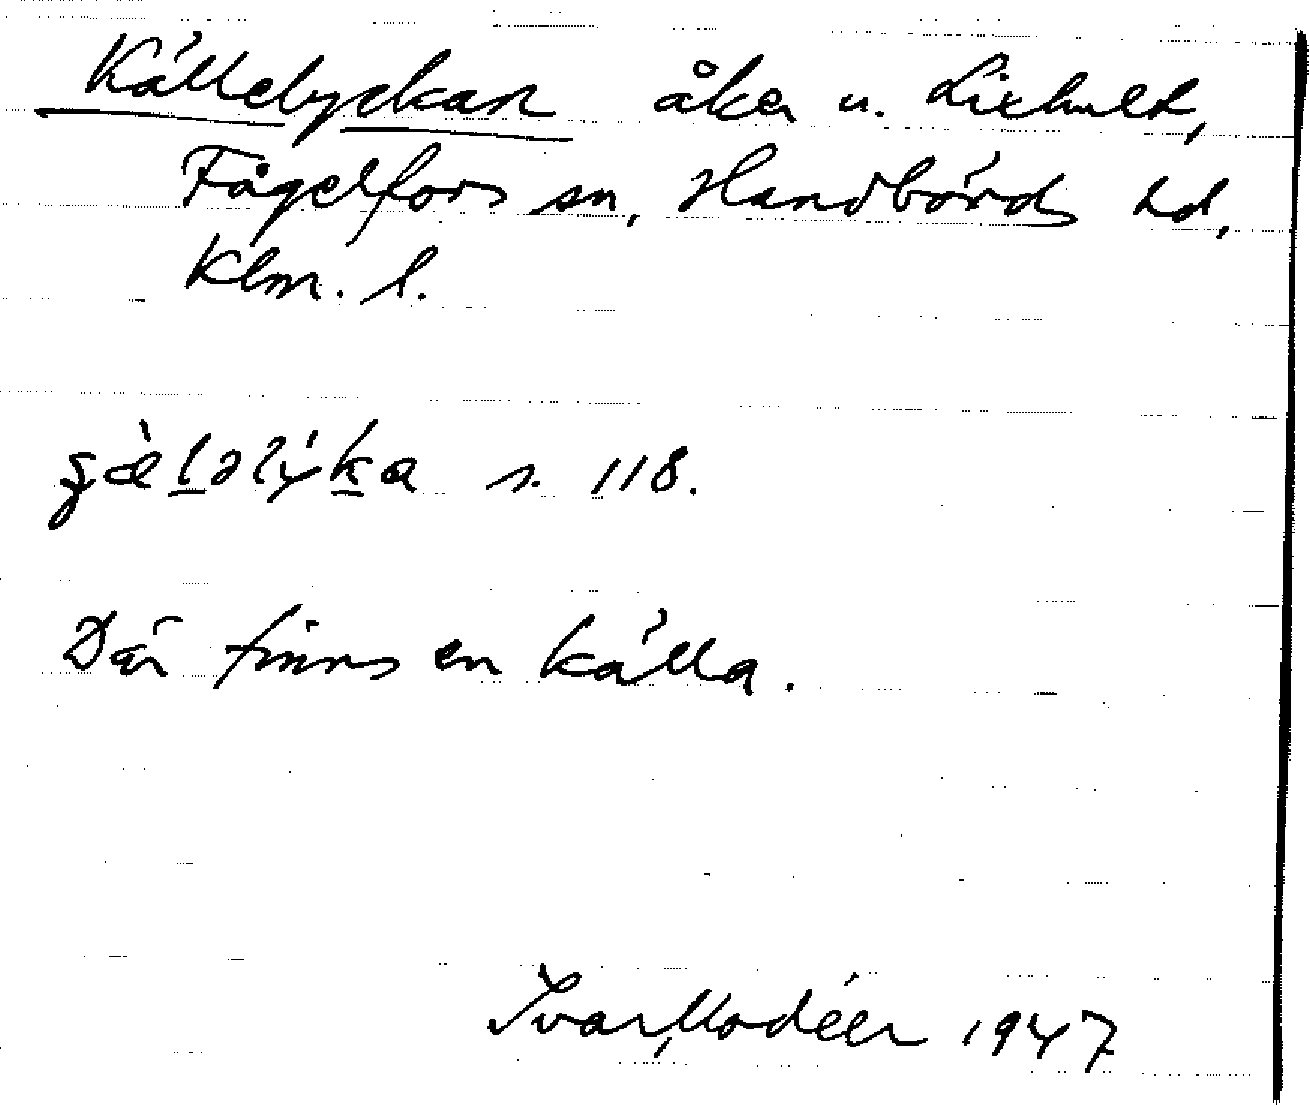 Källelyckan åker u. Lixhult,
Fågelfors sn, Handbörds hd,
Klm. l.
s. 118.
Där finns en källa.
Ivar Modéer 1947